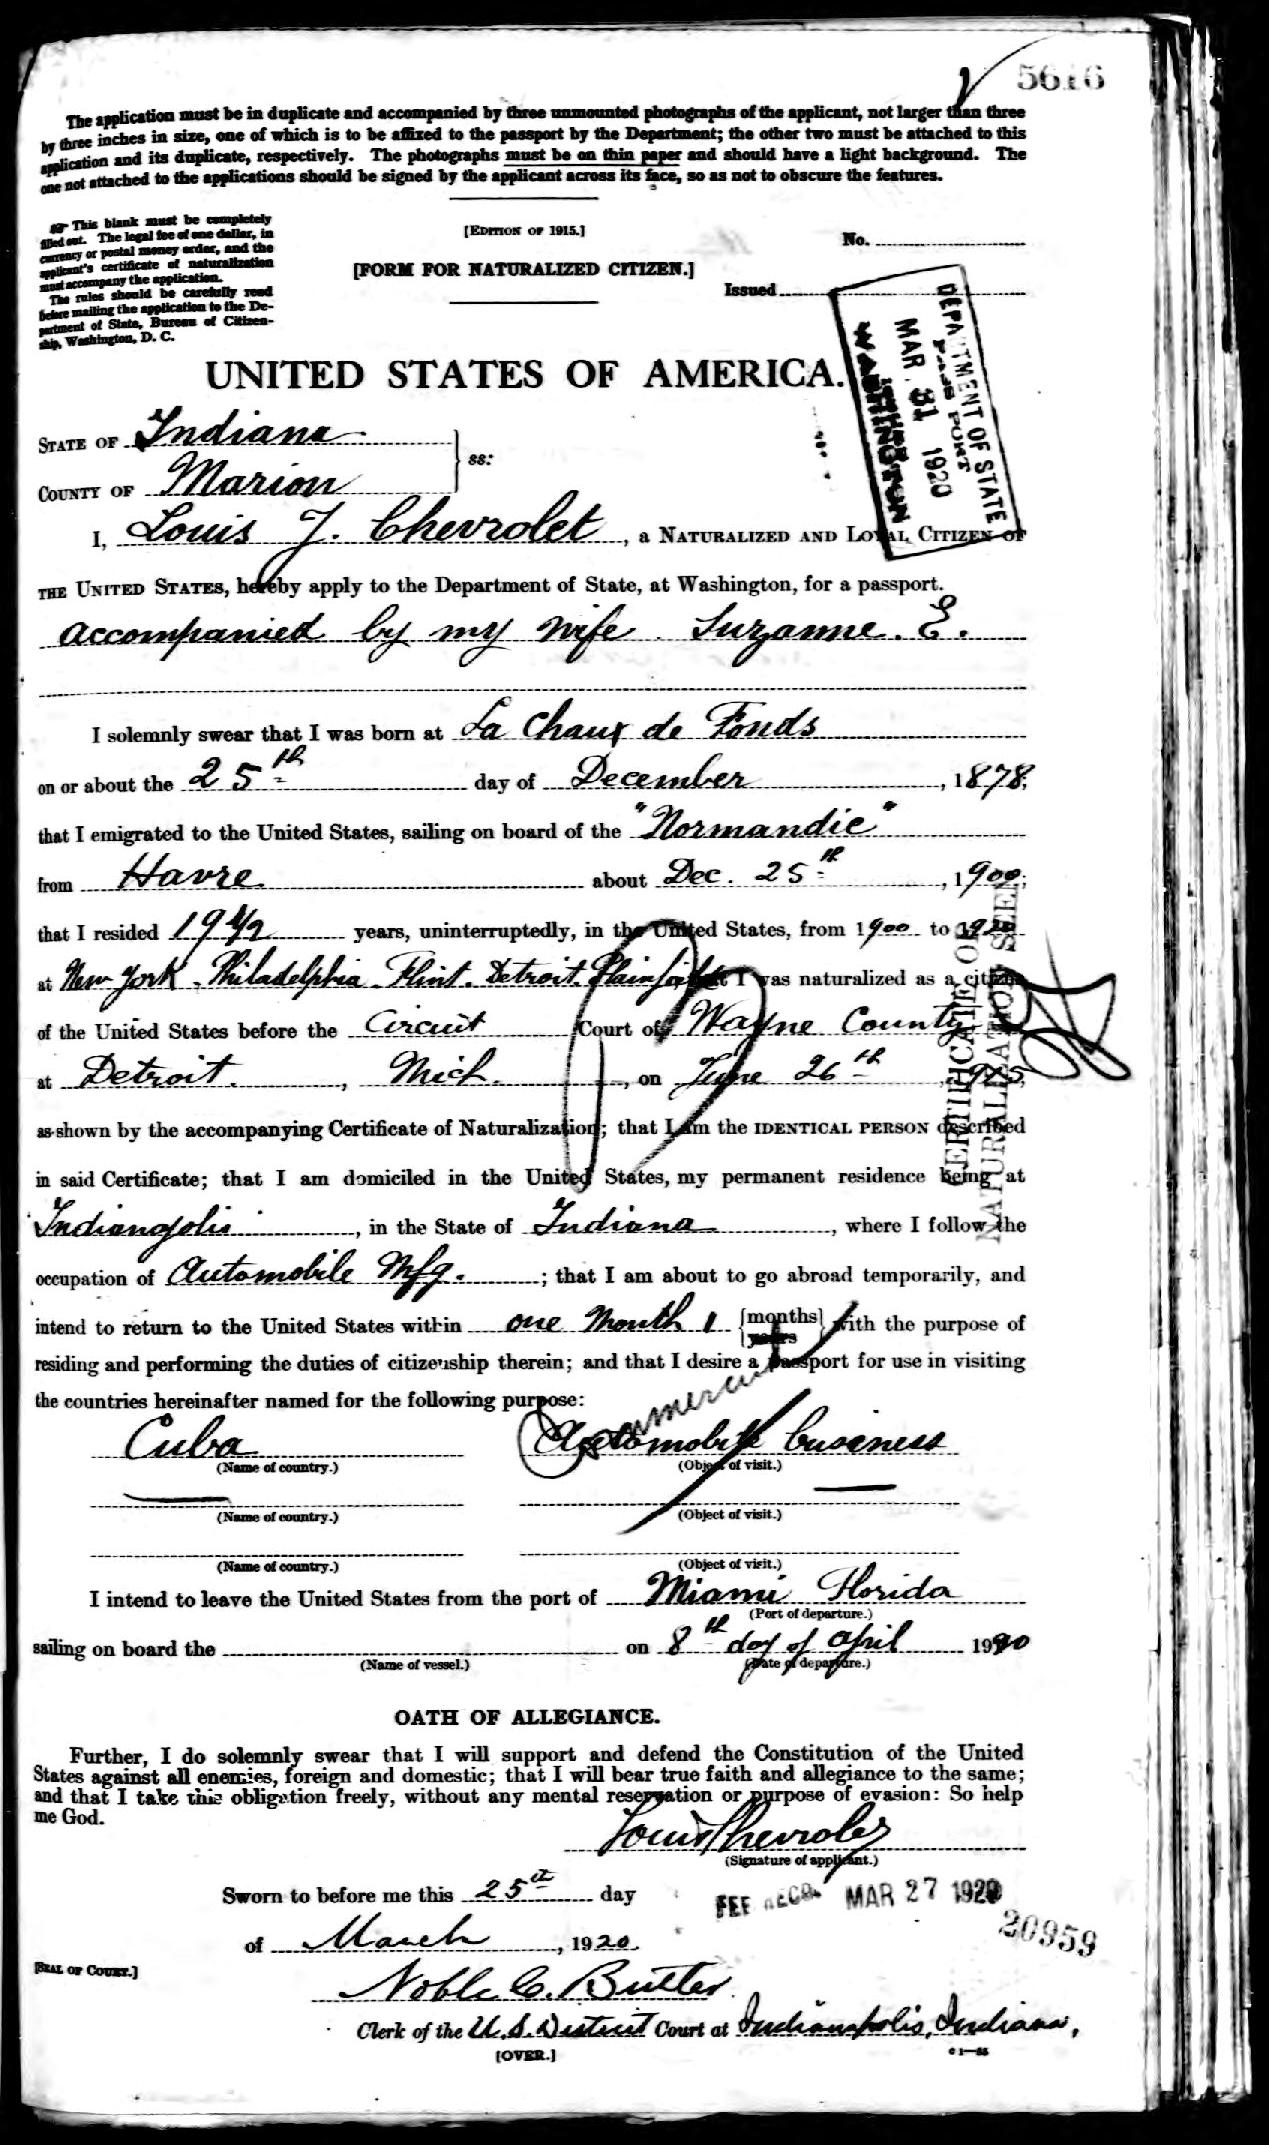 5616
The application must be in duplicate and accompanied by three unmounted photographs of the applicant, not larger than three
by three inches in size, one of which is to be affixed to the passport by the Department; the other two must be attached to this
application and its duplicate, respectively. The photographs must be on thin paper and should have a light background. The
one not attached to the applications should be signed by the applicant across its face, so as not to obscure the features.
This blank must be completely
filled out. The legal fee of one dollar, in
currency or postal money order, and the
applicant's certificate of naturalization
must accompany the application.
The rules should be carefully read
before mailing the application to the De-
partment of State, Bureau of Citizen-
ship, Washington, D. C.
[EDITION OF 1915.]
[FORM FOR NATURALIZED CITIZEN.]
No.
Issued
DEPARTMENT OF STATE
PASSPORT
MAR 31 1920
WASHINGTON
UNITED STATES OF AMERICA.
STATE OF Indiana
ss:
COUNTY OF Marion
I, Louis J. Chevrolet, a NATURALIZED AND LOYAL CITIZEN OF
THE UNITED STATES, hereby apply to the Department of State, at Washington, for a passport.
accompanied by my wife Suzanne. E.
I solemnly swear that I was born at La Chaux de Fonds
on or about the 25th day of December, 1878;
that I emigrated to the United States, sailing on board of the "Normandie"
from Havre about Dec. 25th, 1900;
that I resided 19 1/2 years, uninterruptedly, in the United States, from 1900 to 1920
at New York - Philadelphia - Flint. Detroit. Plainfield that I was naturalized as a citizen
of the United States before the Circuit Court of Wayne County
at Detroit, Mich., on June 26th, 1915,
as shown by the accompanying Certificate of Naturalization; that I am the IDENTICAL PERSON described
in said Certificate; that I am domiciled in the United States, my permanent residence being at
Indianapolis, in the State of Indiana, where I follow the
occupation of Automobile Mfg.; that I am about to go abroad temporarily, and
intend to return to the United States within one Month 1 {months} {years} with the purpose of
residing and performing the duties of citizenship therein; and that I desire a passport for use in visiting
the countries hereinafter named for the following purpose:
Commercial
Cuba Automobile business
(Name of country.) (Object of visit.)
(Name of country.) (Object of visit.)
(Name of country.) (Object of visit.)
I intend to leave the United States from the port of Miami Florida
(Port of departure.)
sailing on board the on 8th day of April 1920
(Name of vessel.) (Date of departure.)
CERTIFICATE OF
NATURALIZATION SEEN
OATH OF ALLEGIANCE.
Further, I do solemnly swear that I will support and defend the Constitution of the United
States against all enemies, foreign and domestic; that I will bear true faith and allegiance to the same;
and that I take this obligation freely, without any mental reservation or purpose of evasion: So help
me God.
Louis Chevrolet
(Signature of applicant.)
Sworn to before me this 25th day
FEE RECD. MAR 27 1920
of March, 1920.
20959
[SEAL OF COURT.]
Noble C. Butler
Clerk of the U. S. District Court at Indianapolis, Indiana,
[OVER.]